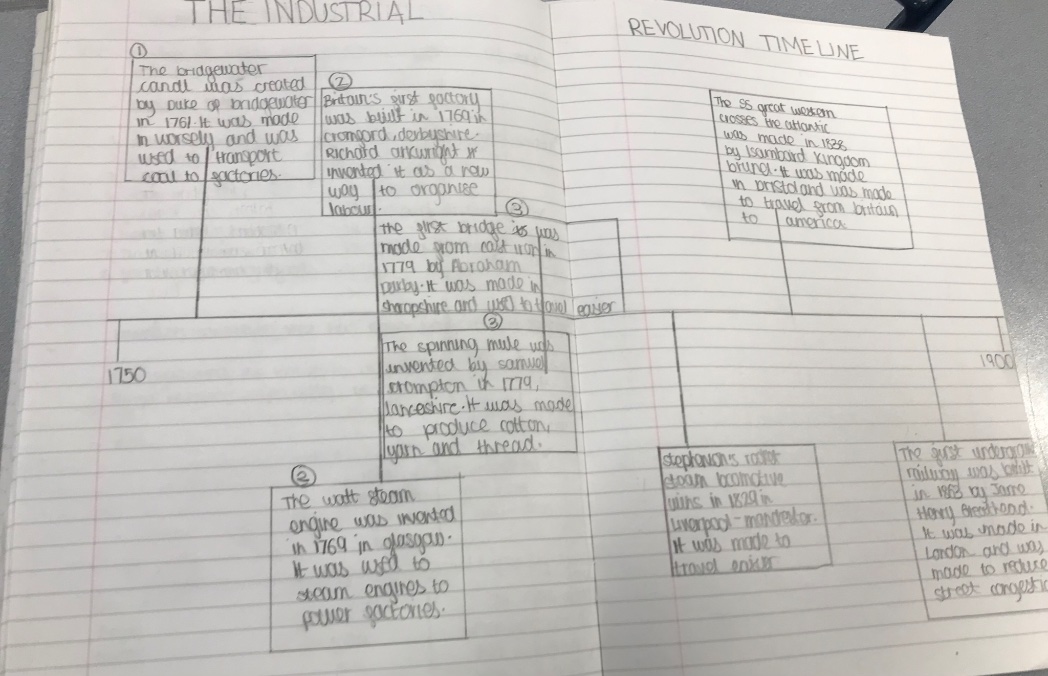 THE INDUSTRIAL
REVOLUTION TIMELINE
①
The bridgewater
canal was created
by Duke of bridgewater
in 1761. It was made
in worsely and was
used to transport
coal to factories.
②
Britain's first factory
was built in 1769 in
cromford, derbyshire.
Richard arkwright
invented it as a new
way to organise
labour.
③
the first bridge was
made from cast iron in
1779 by Abraham
Darby. It was made in
sharopshire and used to travel easier
③
The spinning mule was
invented by samuel
crompton in 1779,
lanceshire. It was made
to produce cotton,
yarn and thread.
②
The watt steam
engine was invented
in 1769 in glasgow.
It was used to
steam engines to
power factories.
The SS great western
crosses the atlantic
was made in 1838
by Isambard Kingdom
brunel. It was made
in bristol and was made
to travel from britain
to america.
1750
1900
stephenson's rocket
steam locomotive
wins in 1829 in
liverpool-manchester.
It was made to
travel easier
The first undergrou
railway was built
in 1863 by
Henry
It was made in
London and was
made to reduce
street congestio